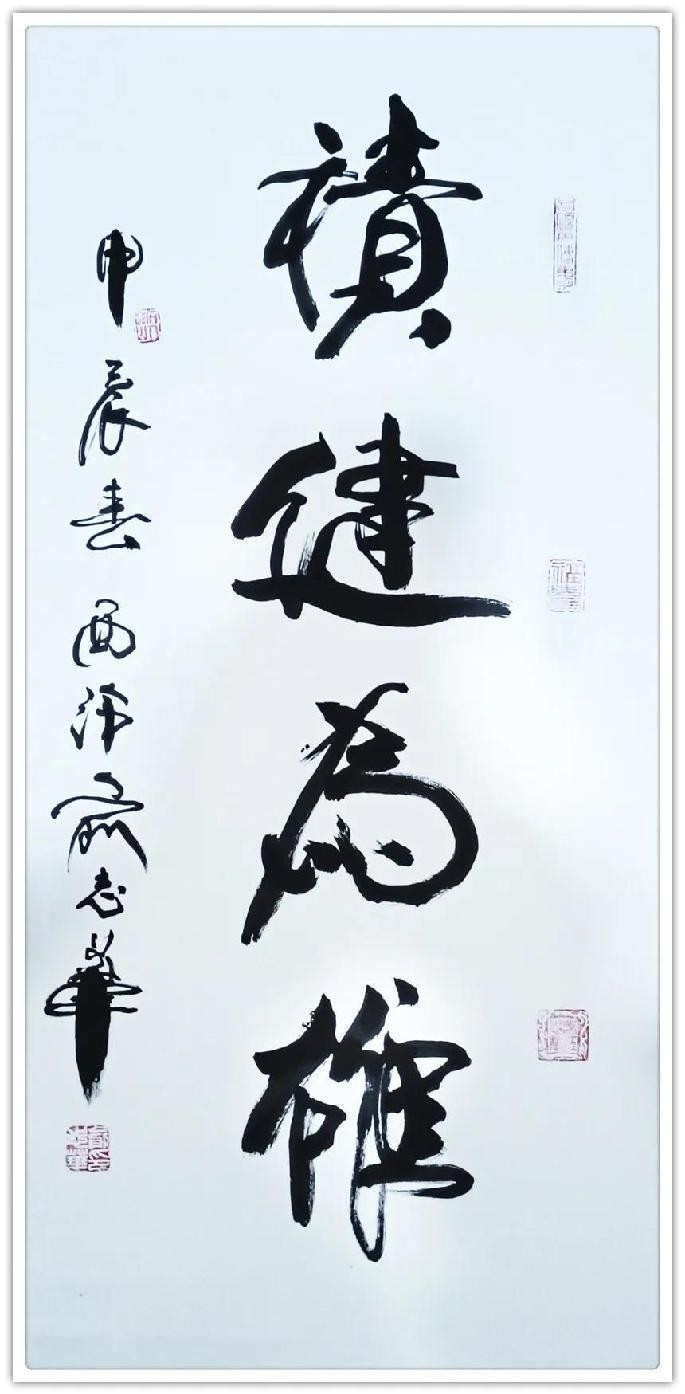 積健為雄
甲辰春 西泠俞志華